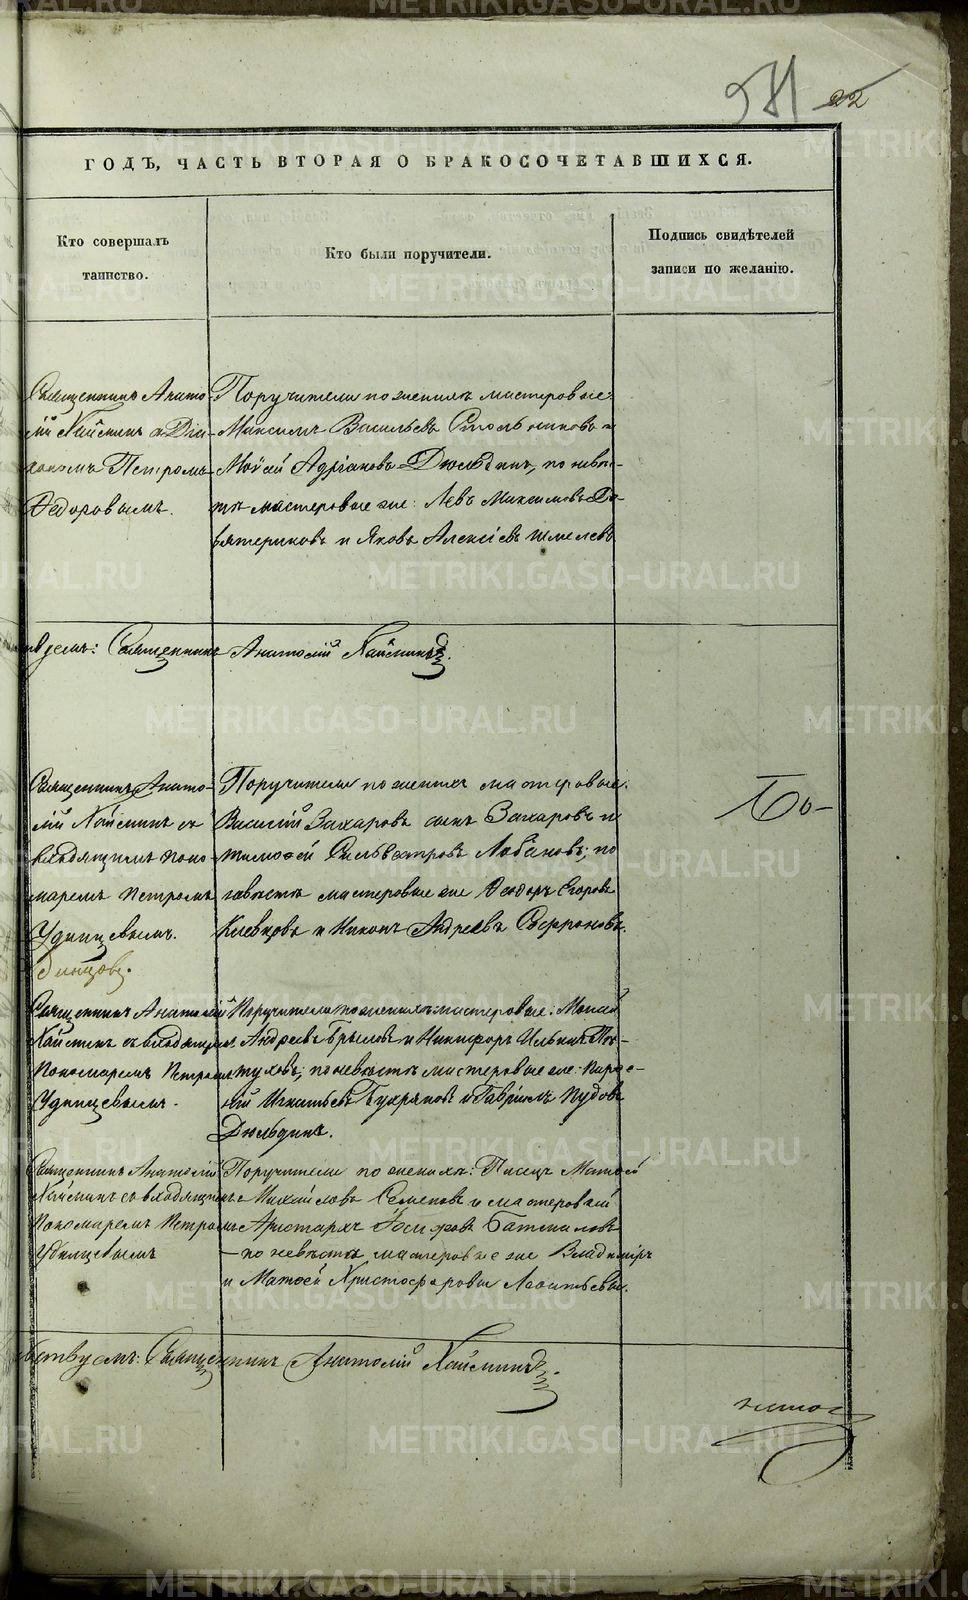 581 22
ГОДЪ, ЧАСТЬ ВТОРАЯ О БРАКОСОЧЕТАВШИХСЯ.
Кто совершалъ
таинство.
Кто были поручители.
Подпись свидѣтелей
записи по желанію.
Священникъ Анато-
лій Хайминъ с Діа-
кономъ Петромъ
Ѳедоровымъ.
Поручители по женихѣ мастеровые
Максимъ Васильевъ Стольниковъ и
Моѵсей Адріановъ Дюльдинъ, по невѣс-
тѣ мастеровые же: Левъ Максимовъ Де-
вятериковъ и Яковъ Алексіевъ Шмелевъ
Священникъ Анатолій Хайминъ.
Священникъ Анато-
лій Хайминъ съ
входящимъ Поно-
маремъ Петромъ
Удинцевымъ.
Поручители по женихѣ мастеровые:
Василій Захаровъ сынъ Захаровъ и
Тимоѳей Сильвестровъ Лобановъ; по
невѣстѣ мастеровые же Ѳеодоръ Егоровъ
Клевцовъ и Никонъ Андреевъ Сафроновъ.
Священникъ Анатолій
Хайминъ съ входящимъ
Пономаремъ Петромъ
Удинцевымъ.
Поручители по женихѣ мастеровые:
Андреевъ Брылов и Никифоръ Ильинъ
по невѣстѣ мастеровые же:
Игнатьевъ и Гавріилъ Пудовъ
Дюльдинъ.
Священникъ Анатолій
Хайминъ съ входящимъ
Пономаремъ Петромъ
Удинцевымъ
Поручители по женихѣ: Писецъ Матѳей
Михайловъ Семеновъ и мастеровой
Аристархъ Іосифовъ Батмановъ
по невѣстѣ мастеровые же Владиміръ
и Матѳей Христофоровы Леонтьевы.
Священникъ Анатолій Хайминъ.
METRIKI.GASO-URAL.RU